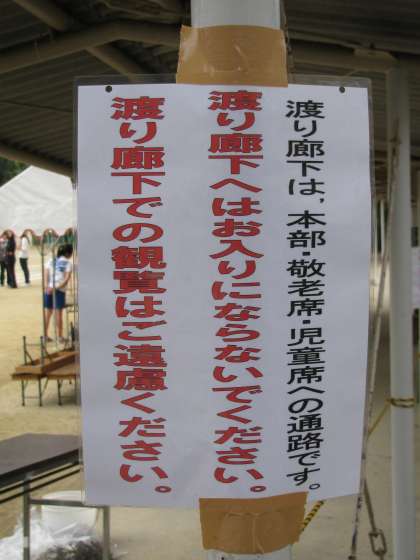 渡り廊下は、本部・敬老席・児童席への通路です。
渡り廊下へはお入りにならないでください。
渡り廊下での観覧はご遠慮ください。